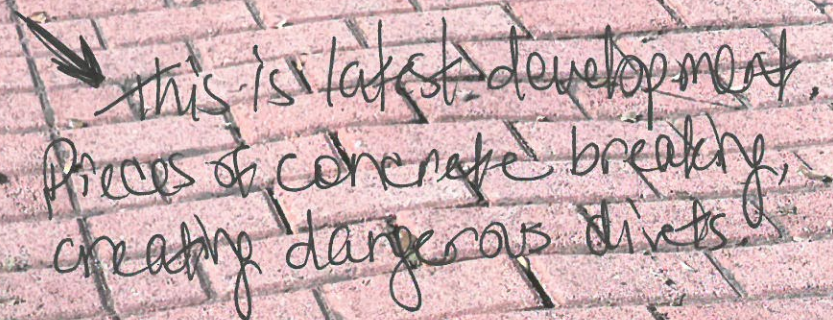 this is latest development.
Pieces of concrete breaking,
creating dangerous divets.